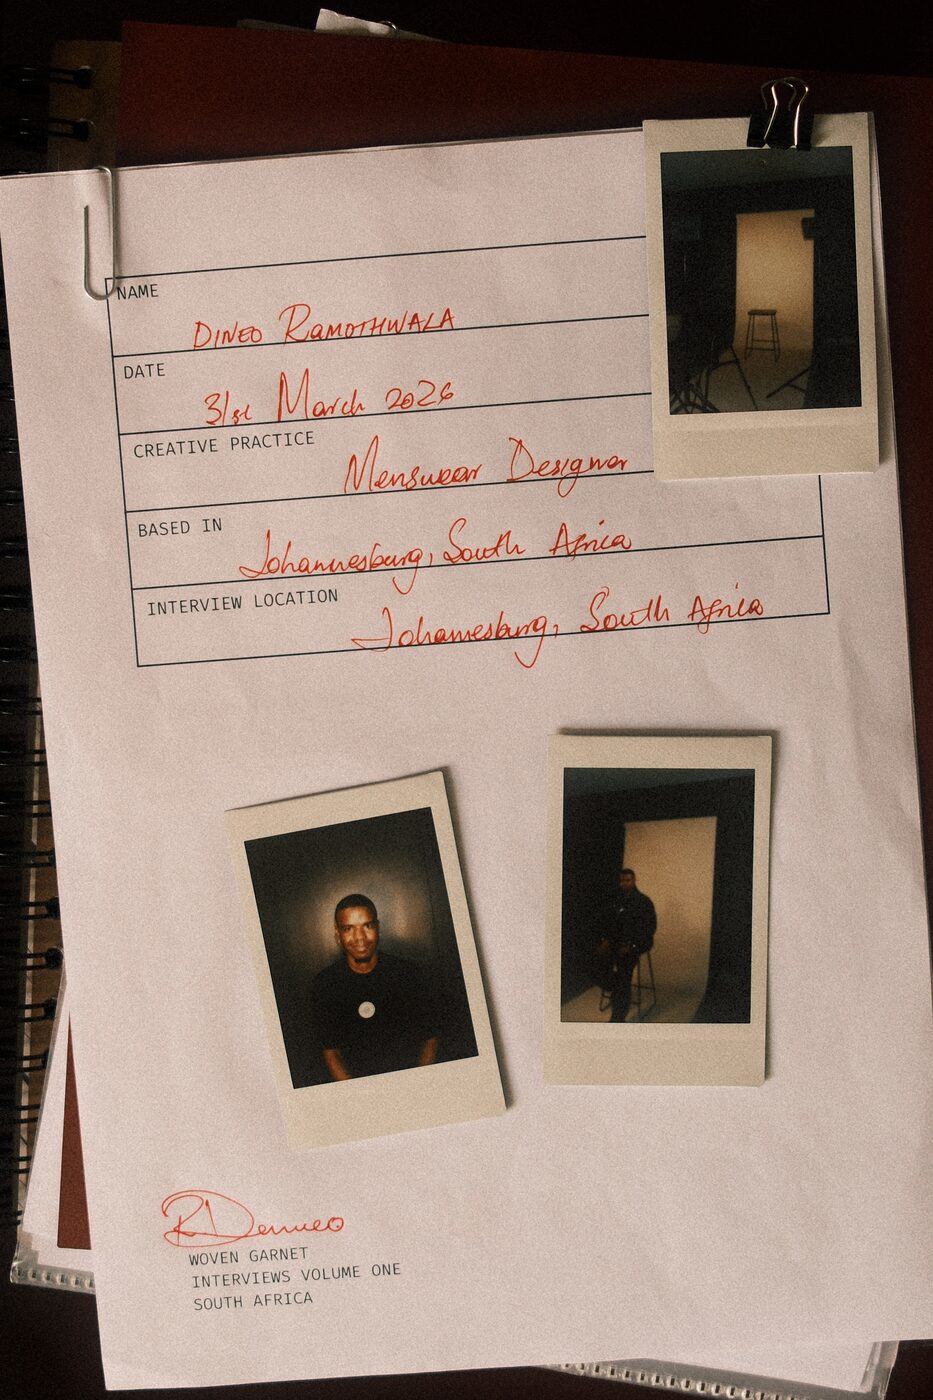 NAME
DINEO RAMOTHWALA
DATE
31st March 2026
CREATIVE PRACTICE
Menswear Designer
BASED IN
Johannesburg, South Africa
INTERVIEW LOCATION
Johannesburg, South Africa
WOVEN GARNET
INTERVIEWS VOLUME ONE
SOUTH AFRICA